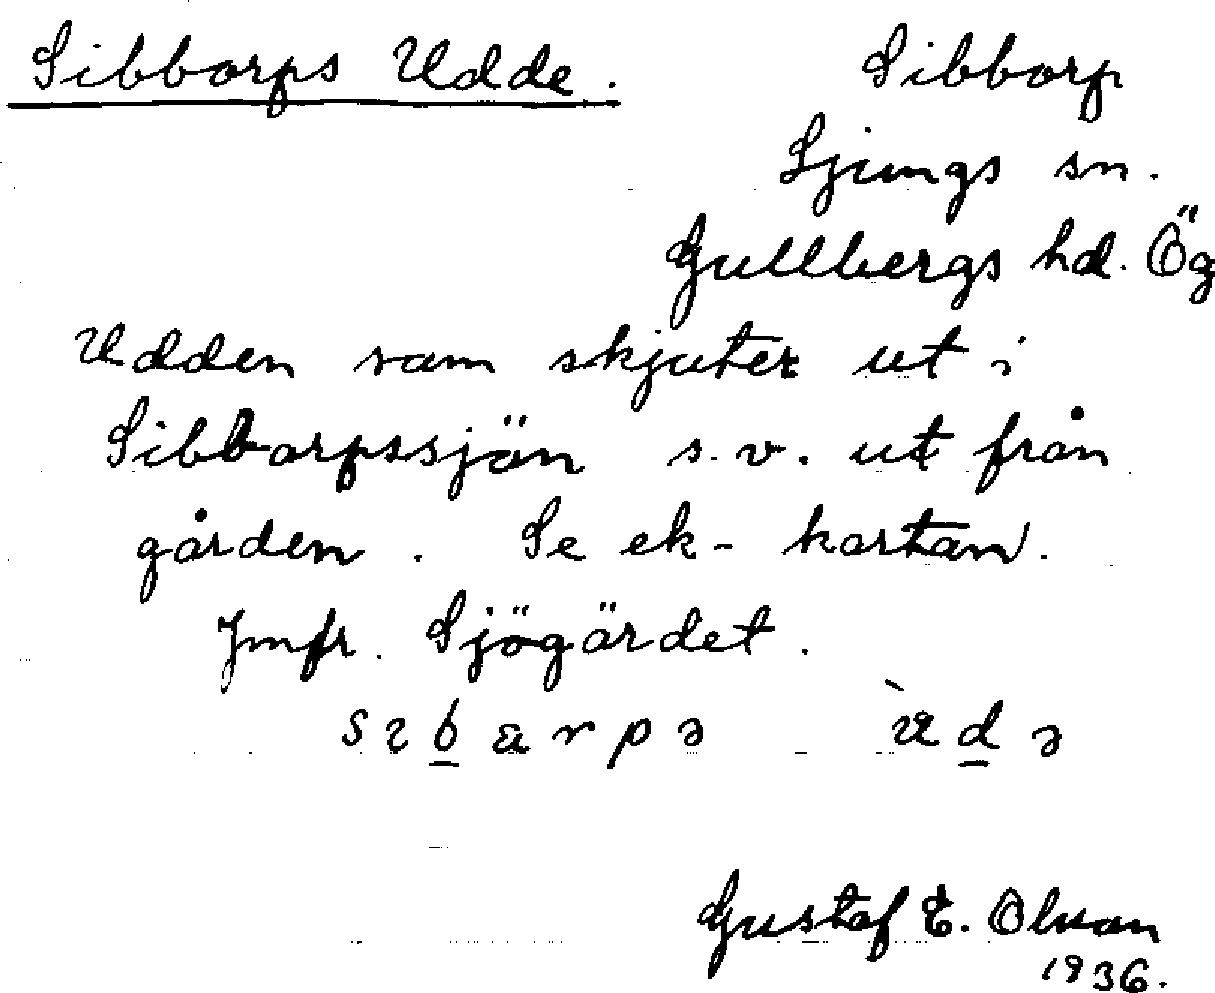 Sibborps Udde. Sibborp
Ljungs sn.
Gullbergs hd. Ög
Udden som skjuter ut i
Sibborpssjön s.v. ut från
gården. Se ek-kartan.
Jmfr. Sjögärdet.
Gustaf E. Olsson
1936.